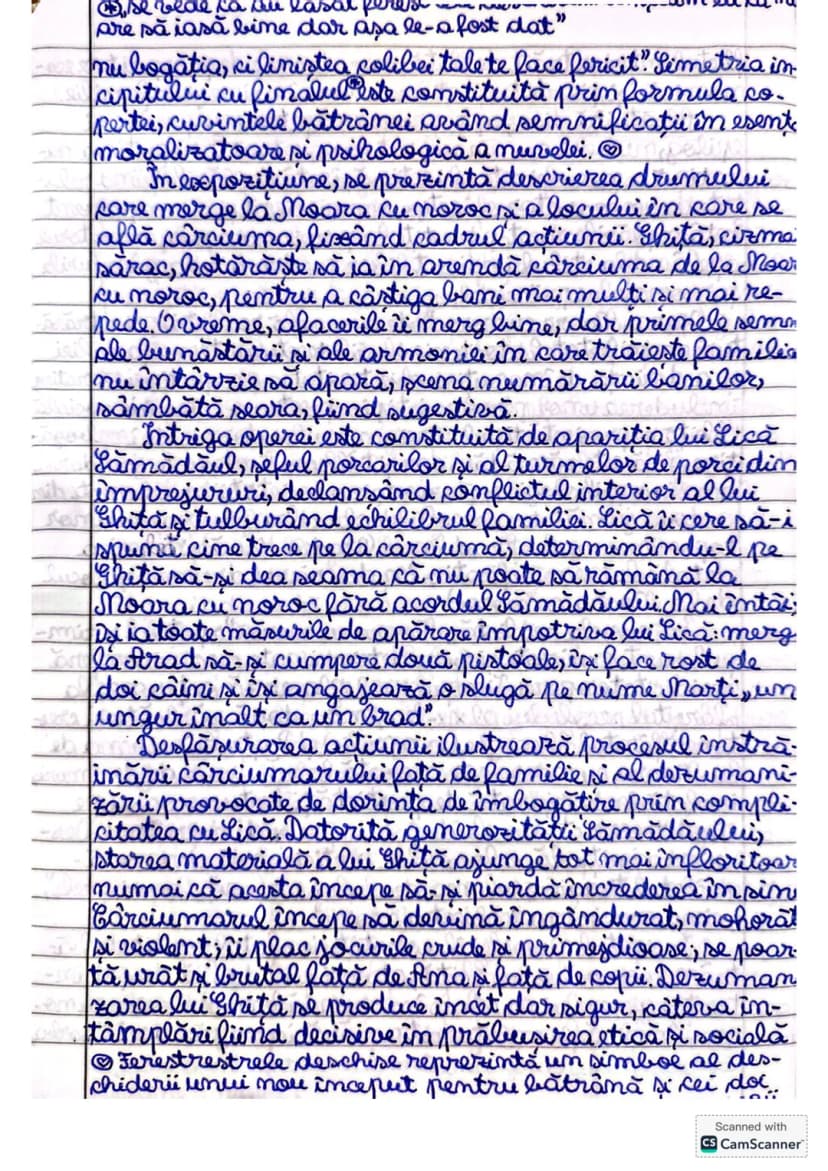 se vede că au lăsat
are să iasă bine dar așa le-a fost dat"
nu bogăția, ci liniștea colibei tale te face fericit". Simetria in-
cipitului cu finalul este constituită prin formula co-
pertei, cuvintele bătrânei având semnificații în esenț
moralizatoare și psihologică a nuvelei.
În expozițiune, se prezintă descrierea drumului
care merge la Moara cu noroc și a locului în care se
află cârciuma, fixând cadrul acțiunii. Ghiță, cizma
sărac, hotărăște să ia în arendă cârciuma de la Moar
cu noroc, pentru a câștiga bani mai mulți și mai re-
pede. O vreme, afacerile îi merg bine, dar primele semn
ale bunăstării și ale armoniei în care trăiește familia
nu întârzie să apară, scena numărării banilor,
sâmbătă seara, fiind sugestivă.
Intriga operei este constituită de apariția lui Lică
Sămădăul, șeful porcarilor și al turmelor de porci din
împrejurimi, declanșând conflictul interior al lui
Ghiță și tulburând echilibrul familiei. Lică îi cere să-i
spună cine trece pe la cârciumă, determinându-l pe
Ghiță să-și dea seama că nu poate să rămână la
Moara cu noroc fără acordul Sămădăului. Mai întâi,
își ia toate măsurile de apărare împotriva lui Lică: merg
la Arad să-și cumpere două pistoale, își face rost de
doi câini și își angajează o slugă pe nume Marți „un
ungur înalt ca un brad".
Desfășurarea acțiunii ilustrează procesul înstră-
inării cârciumarului față de familie și al dezumani-
zării provocate de dorința de îmbogățire prin compli-
citatea cu Lică. Datorită generozității Sămădăului,
starea materială a lui Ghiță ajunge tot mai înfloritoar
numai că acesta începe să-și piardă încrederea în sine
Cârciumarul începe să devină îngândurat, mohorât
și violent; îi plac jocurile crude și primejdioase; se poar-
tă urât și brutal față de Ana și față de copii. Dezuman
zarea lui Ghiță se produce încet dar sigur, câteva în-
tâmplări fiind decisive in prăbușirea etică și socială
Ferestrestrele deschise reprezintă un simbol al des-
chiderii unui nou început pentru bătrână și cei doi
Scanned with
CS CamScanner